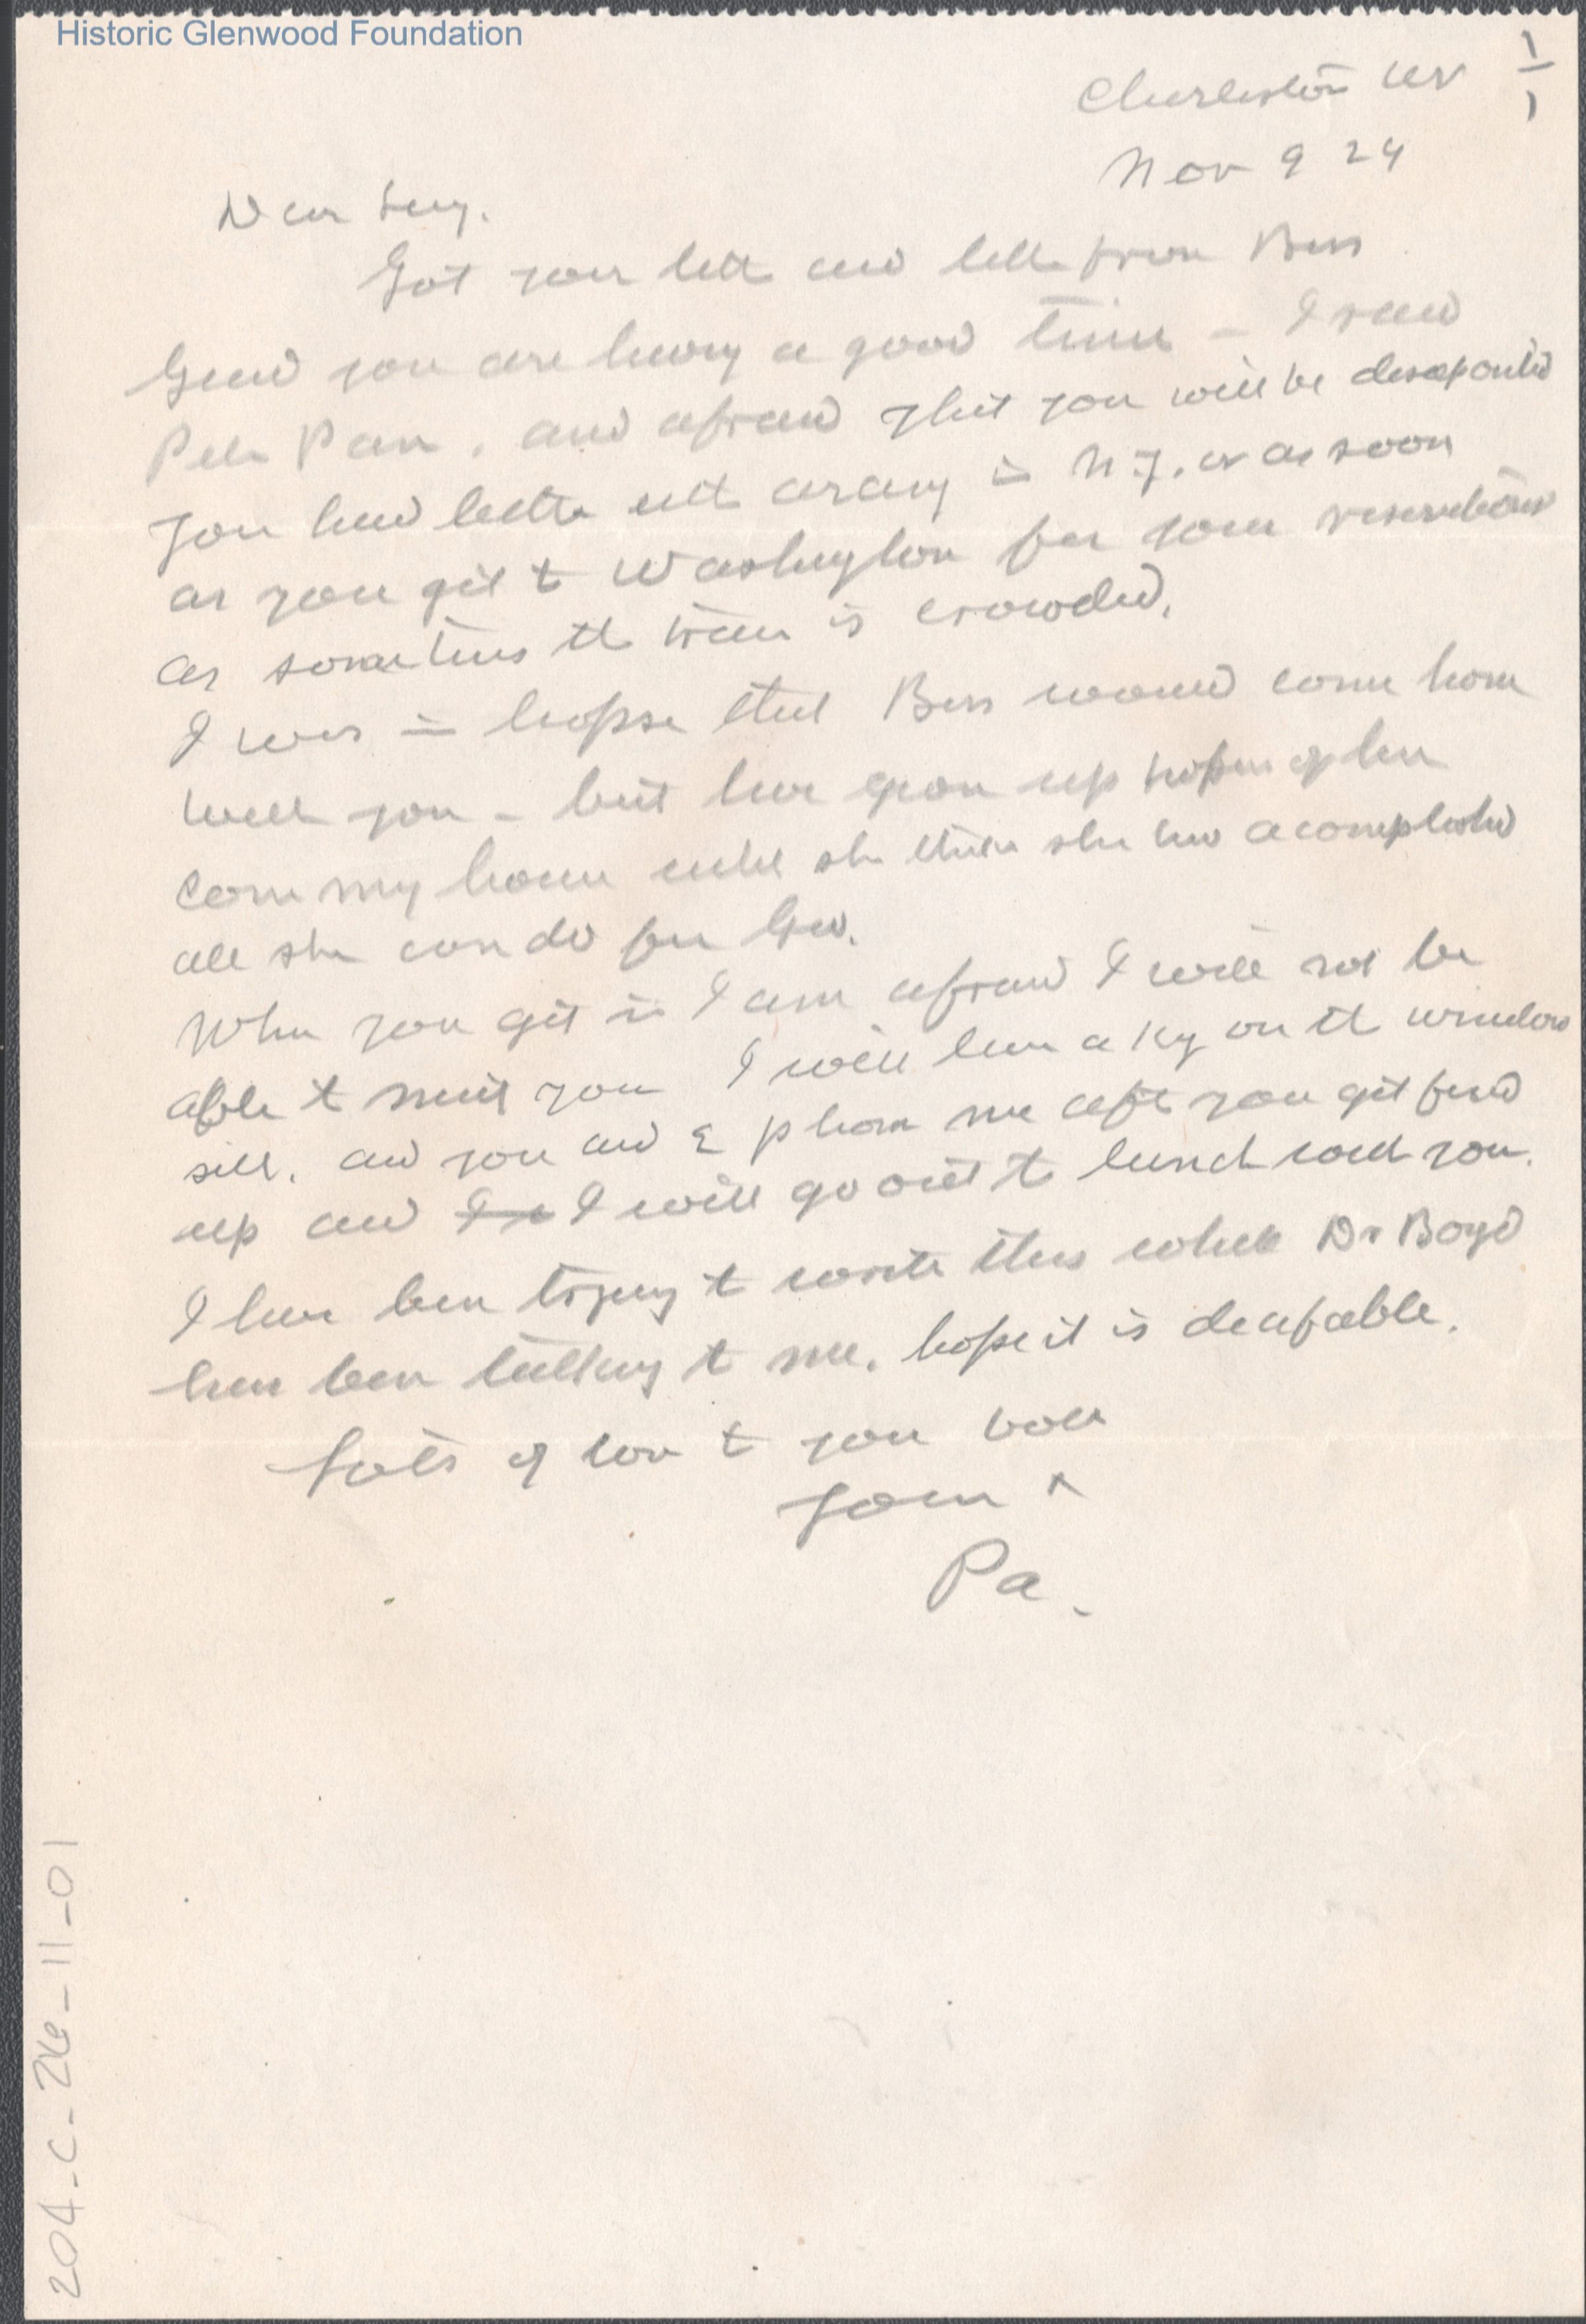 Historic Glenwood Foundation
1/1
Charleston WV
Nov 9 24
Dear Lucy.
Got your lett and lette from Bess
Glad you are having a good time - I read
Peter Pan, and afraid that you will be disapointed
You had better at in N.Y. or as soon
as you get to Washington for your reservations
as sometimes the train is crowded.
I was in hopse that Bess would come home
with you - but have given up hopes of her
coming home until she thinks she has acomplished
all she can do for Geo.
When you get in I am afraid I will not be
able to meet you I will leave a key on the window
sill. and you and E phone me after you get fixed
up and I will go out to lunch with you.
I have been trying to write this while Dr Boyd
has been talking to me. hope it is deafable.
Lots of love to you both
Your
Pa.
204-C-26-11-01